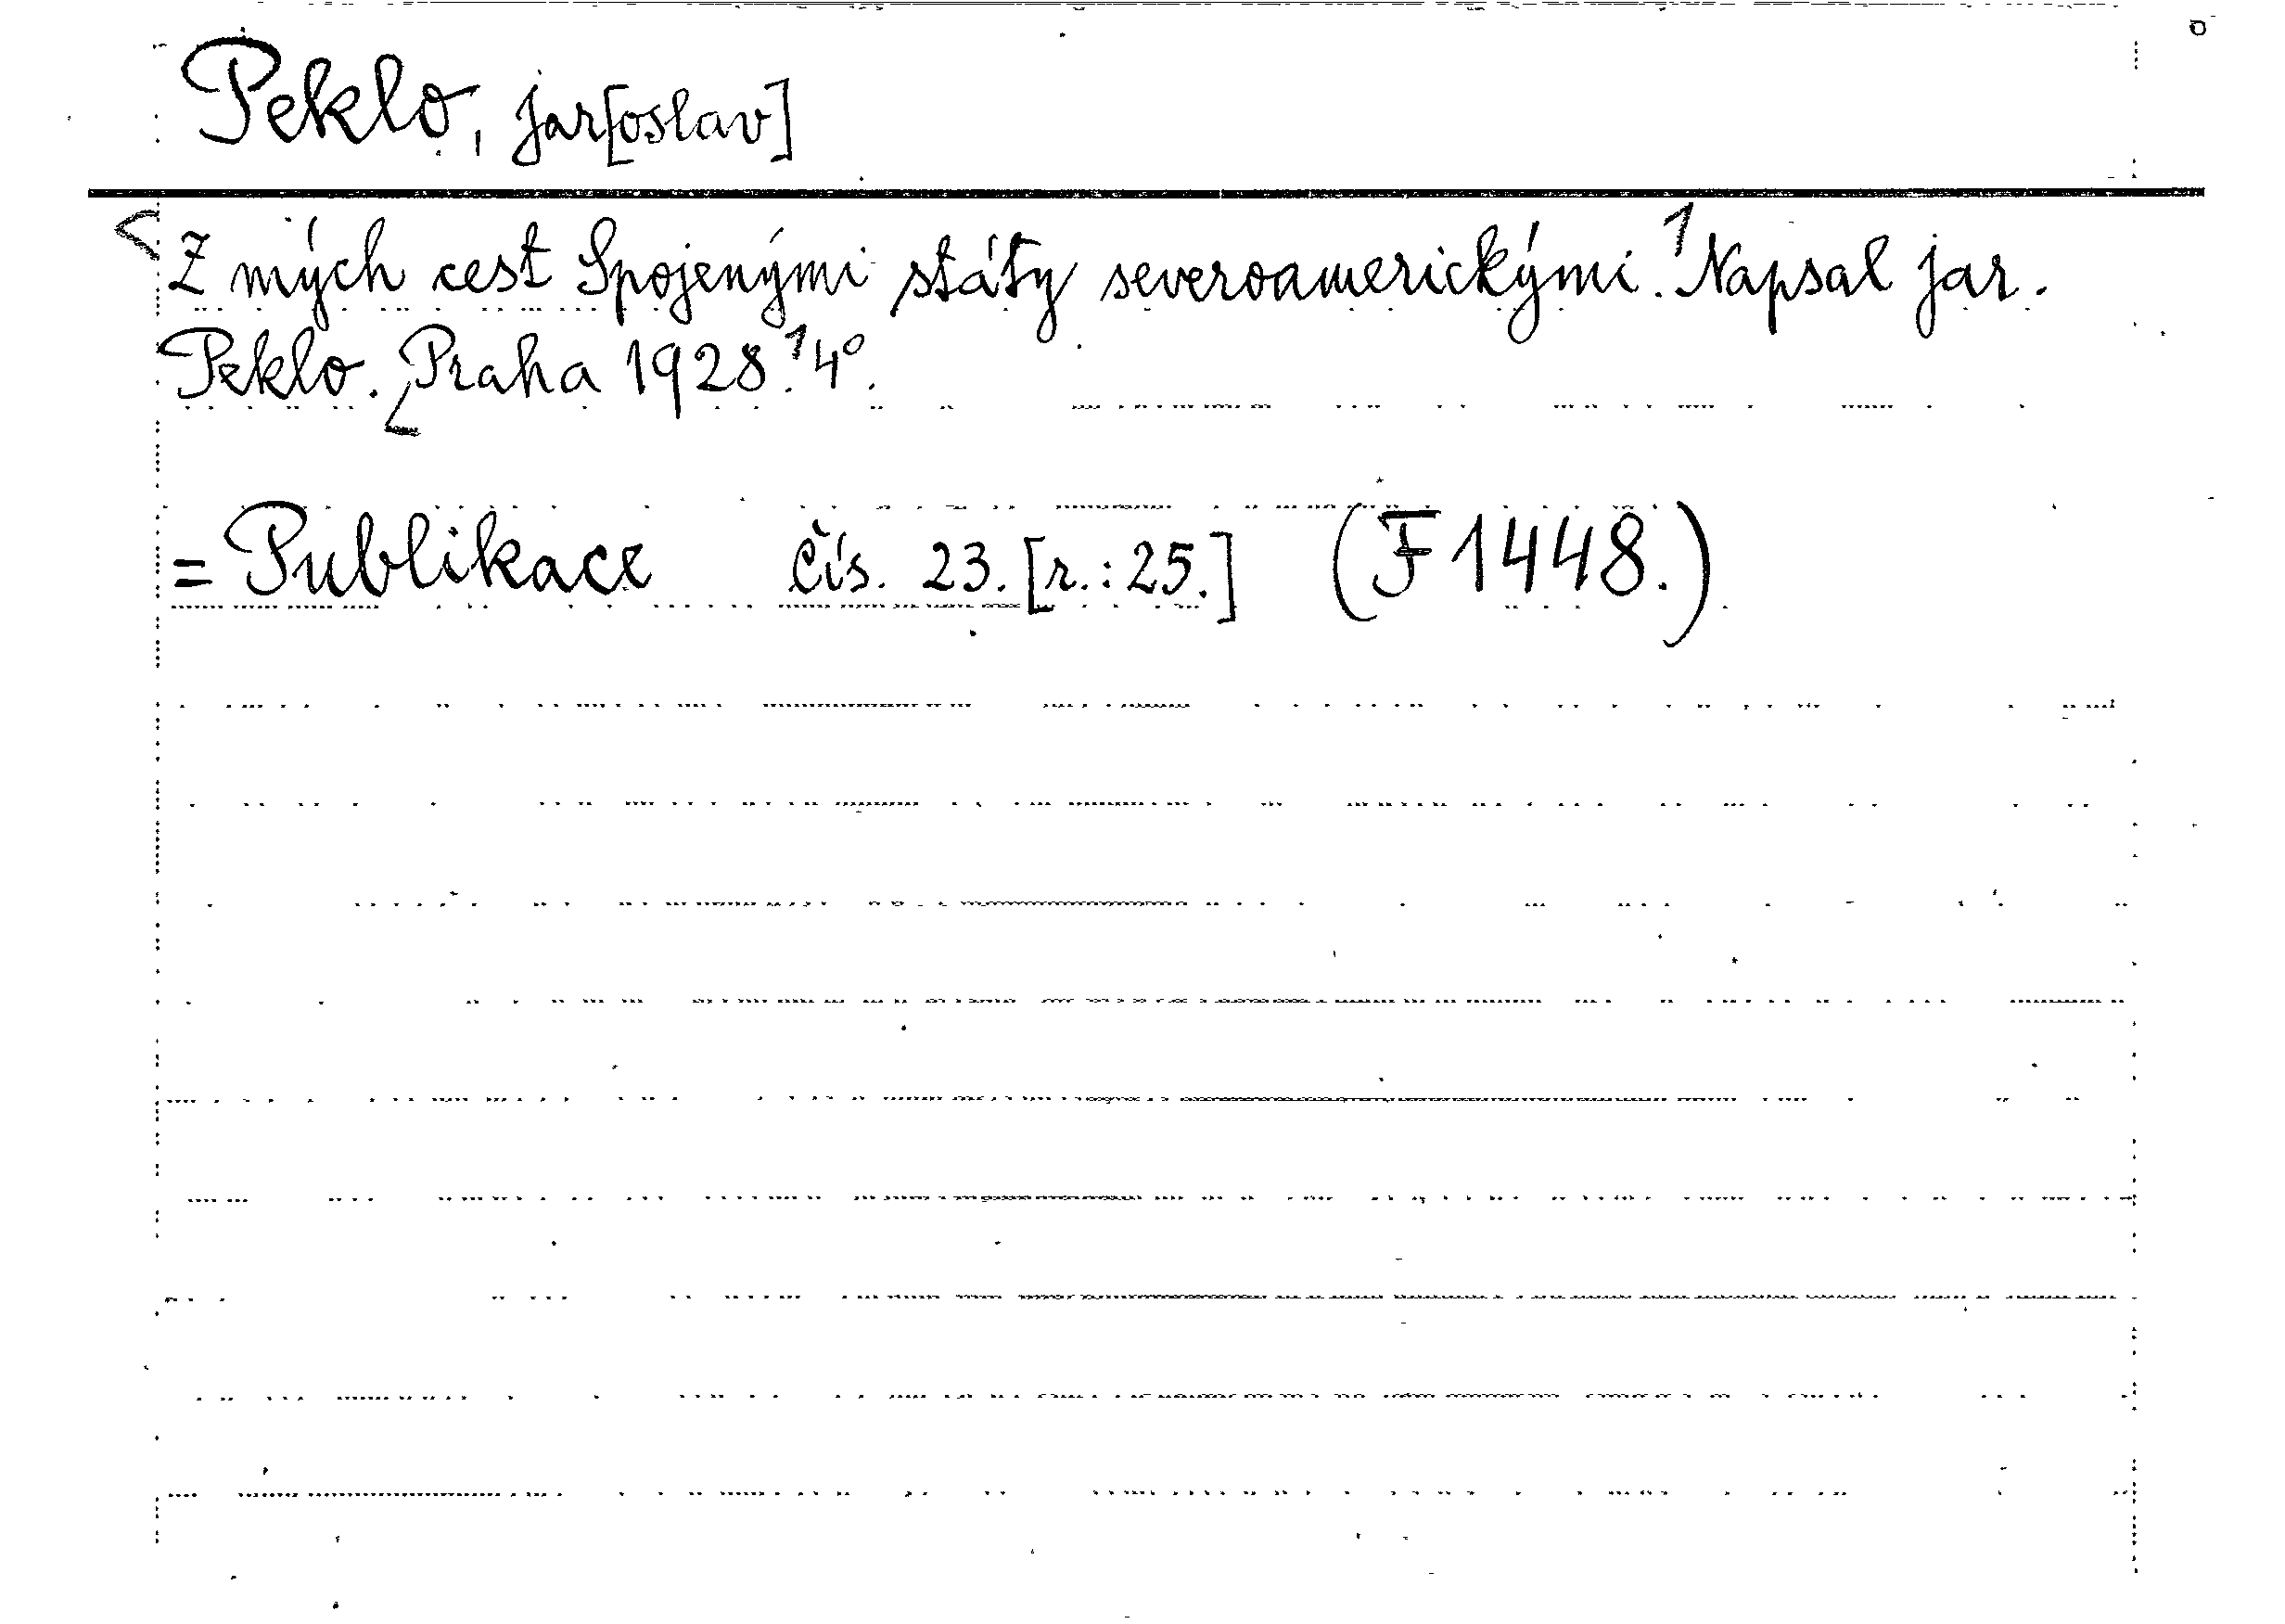 Peklo, Jar[oslav]
Z mých cest Spojenými státy severoamerickými. Napsal Jar.
Peklo. Praha 1928. 4°.
= Publikace čís. 23. [r.: 25.] (F 1448.)